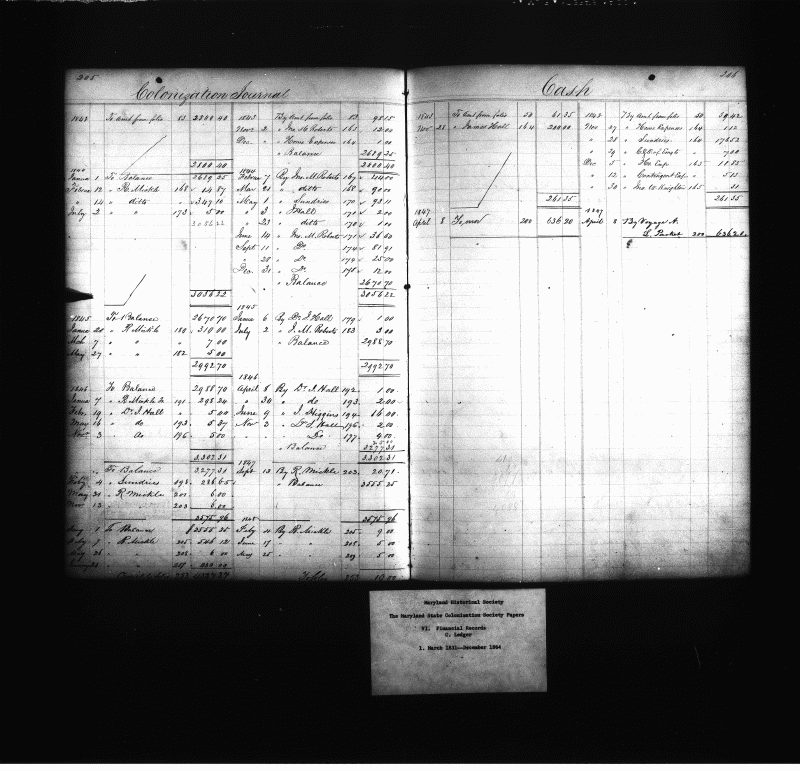 205
Colonization Journal
1843 To Amt from folio 83 2800 40 1843 By Amt from folio 83 98 15
Novr 2 " Jno. M. Roberts 165 12 00
Dec " " Home Expenses 164 1 00
" Balance 2689 25
2800 40 2800 40
1844 1844
Janua 1 To Balance 2689 25 Februa 7 By Jno. M. Roberts 167 " 24 00
Februa 12 " R. Mickle 168 14 87 Mar 21 " ditto 168 " 9 00
" 14 " ditto " 347 10 May 1 " Sundries 170 " 93 11
July 2 " " 173 " 5 00 " 3 " J. Hall 171 " 2 00
3056 22 " 23 " ditto 170 " 1 00
June 14 " Jno. M. Roberts 171 " 36 60
Sept 11 " Do. 174 " 81 91
" 28 " Do 174 " 25 00
Dec. 31 " Do. 178 " 12 00
" Balance 2670 70
3056 22 3056 22
1845 1845
To Balance 2670 70 Janua 6 By Dr J. Hall 179 " 1 00
Janua 20 " R. Mickle 180 " 310 00 July 2 " J. M. Roberts 183 3 00
Mch 7 " " 7 00 " Balance 2988 70
May 27 " " 182 5 00
2992 70 2992 70
1846 1846
To Balance 2988 70 April 8 By Dr J. Hall 192 " 1 00
Janua 7 " R. Mickle 191 " 298 24 " 24 " do 193 " 2 00
Feby 19 " Dr J. Hall " 5 00 June 9 " J. Higgins 194 " 16 00
May 16 " do 193 " 5 37 Nov 3 " Dr J. Hall 196 " 2 00
Novr 3 " do 196 " 5 00 " Do 177 " 4 00
25 00
" Balance 3277 31
3302 31 3302 31
1847
To Balance 3277 31 Sept 13 By R. Mickle 203 20 71
Feby 4 " Sundries 198 " 286 65 " Balance 3555 25
May 31 " R Mickle 201 " 6 00
Nov 13 " 203 " 6 00
3575 96 1848 3575 96
To Balance $3555 25 Feby 4 By R. Mickle 205 9 00
" R. Mickle 205 " June 17 " " 208 5 00
" " 208 " 6 00 Aug 25 " " 209 5 00
206
Cash
1843 To Amt from folio 50 61 35 1843 By Amt from folio 50 59 42
Nov 28 " James Hall 164 200 00 Nov 27 " Home Expenses 164 1 12
" 28 " Sundries 164 176 52
" 29 " 7 00
Dec 5 " Ho. Exp. 165 11 85
" 12 " Contingent Exp. " 5 13
" 30 " Jno. W. Knighton 165 31
261 35 261 35
1847 1847
April 8 To 200 636 20 April 8 By Voyage A.
L. Packet 200 636 20
Maryland Historical Society
The Maryland State Colonization Society Papers
VI. Financial Records
C. Ledger
1. March 1831--December 1864